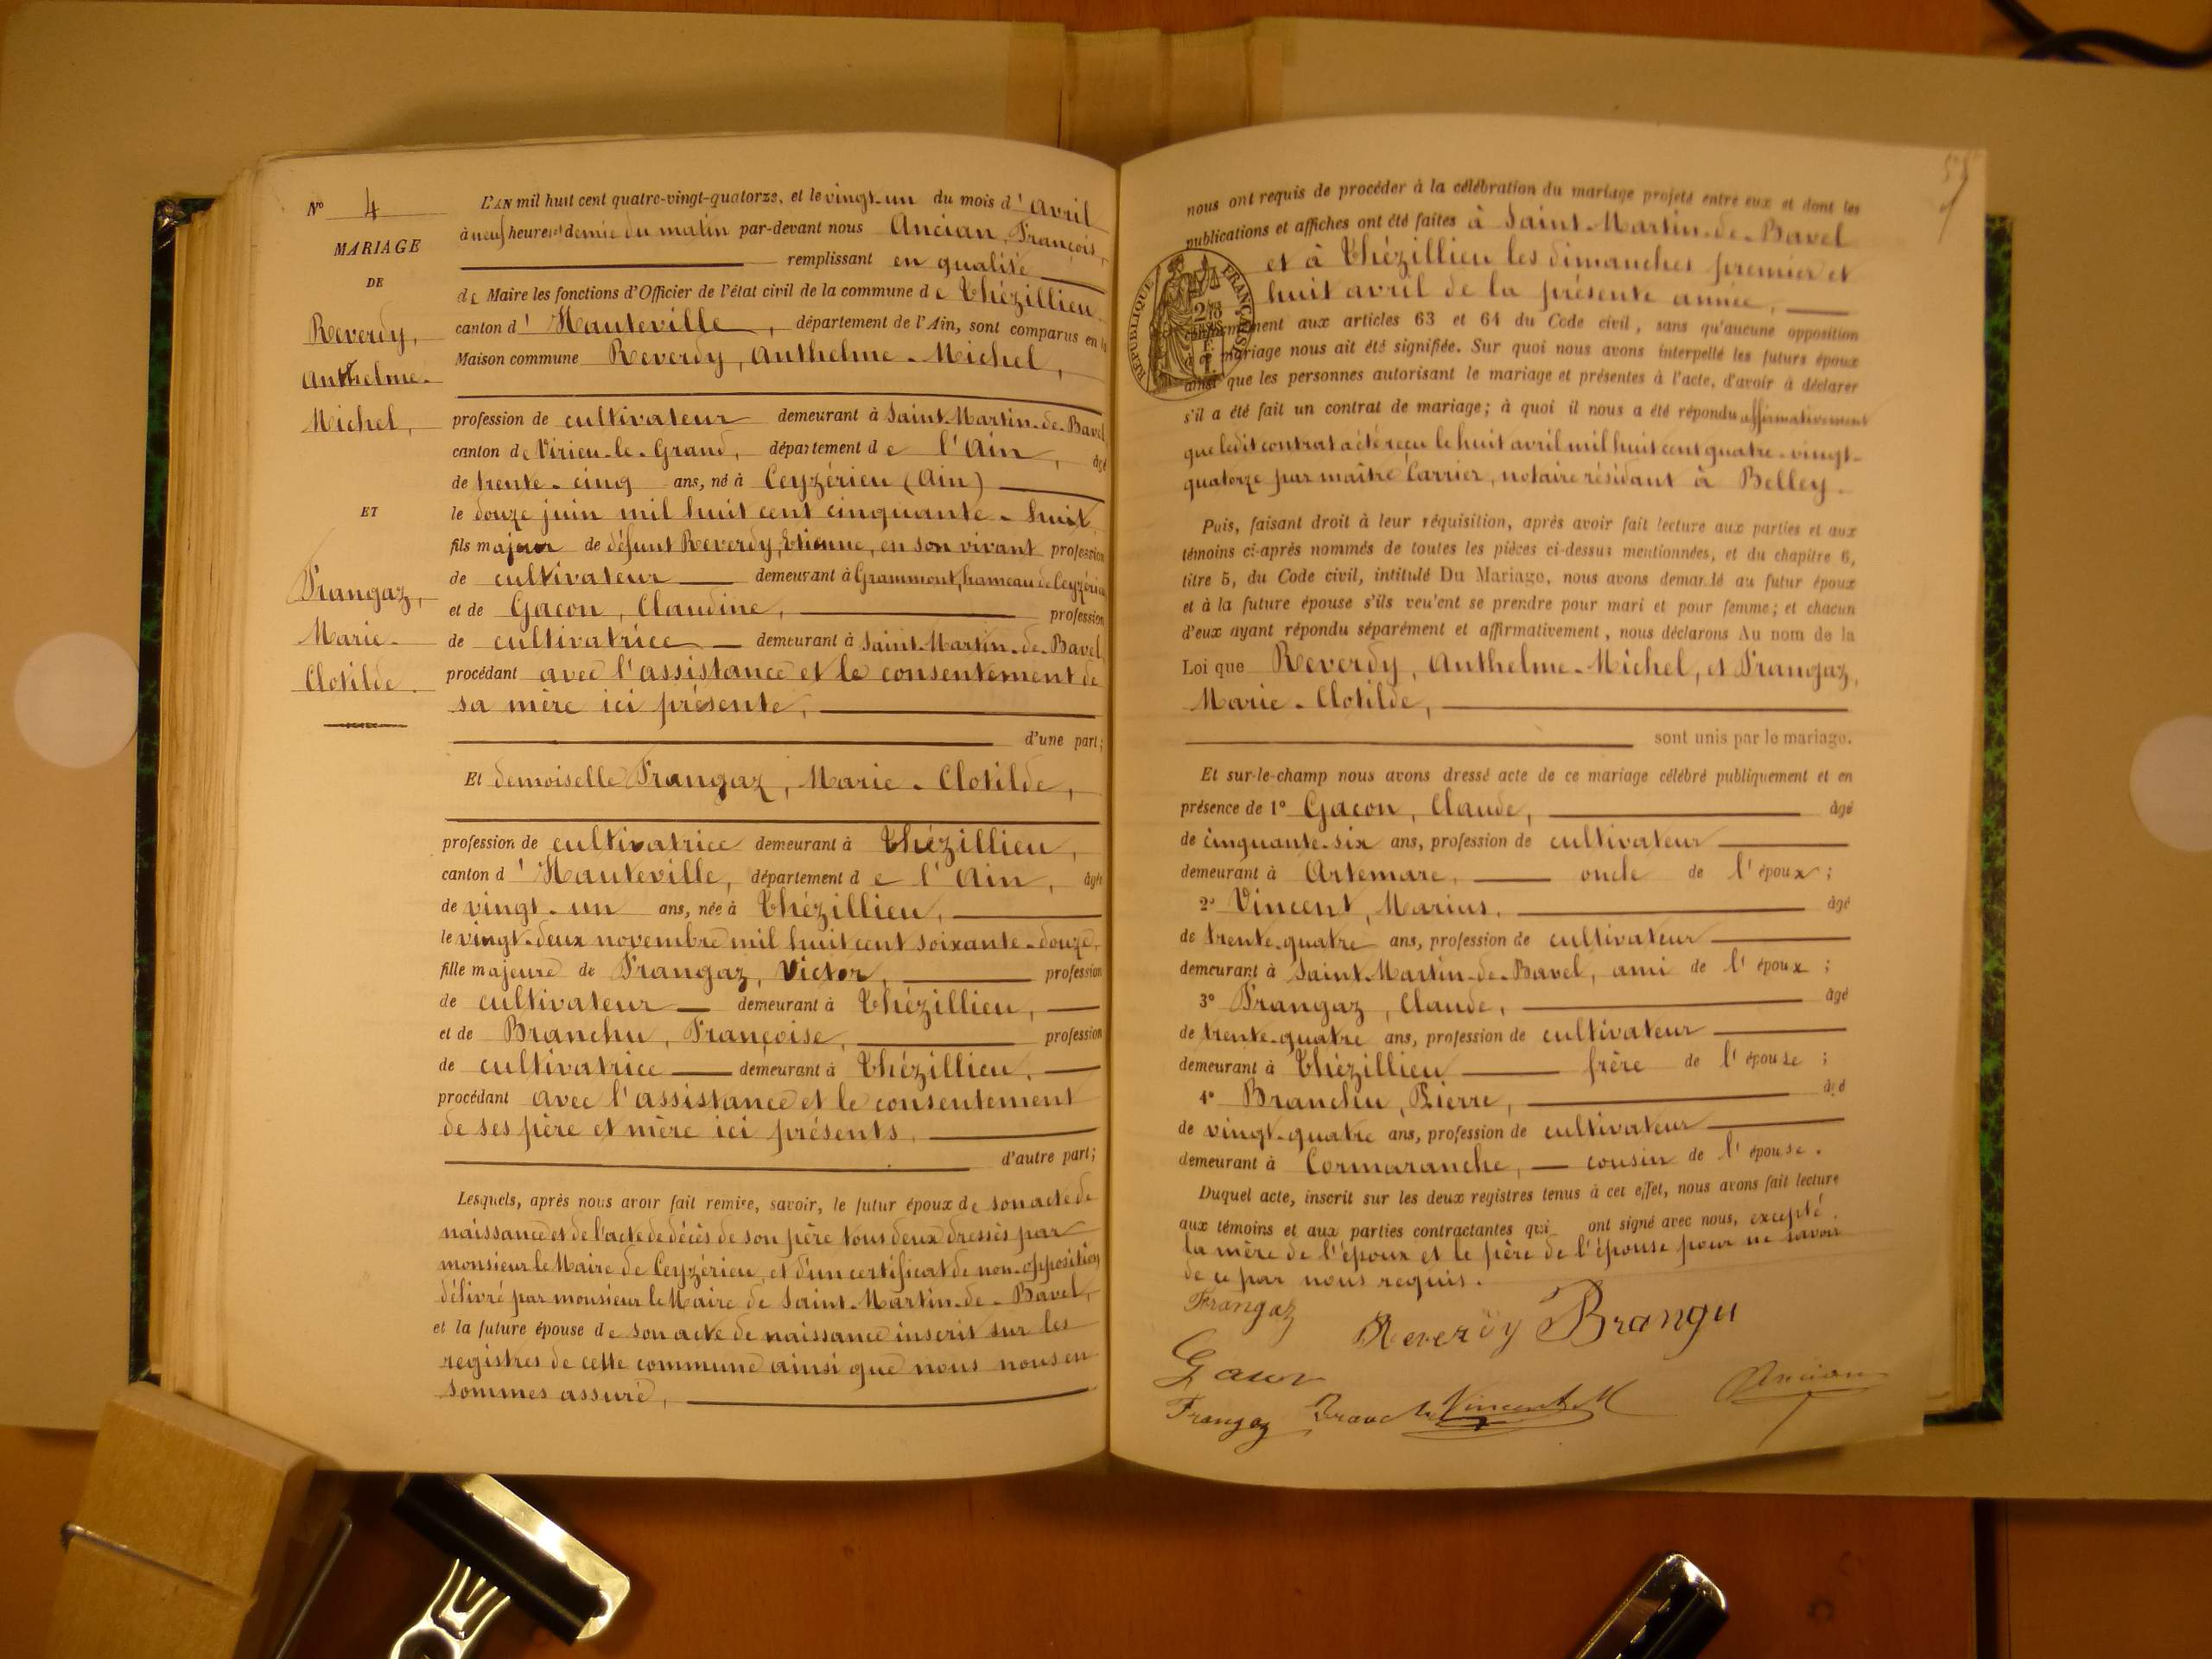 N° 4
MARIAGE
DE
Reverdy,
Anthelme-
Michel,
ET
Frangaz,
Marie-
Clotilde.
L'AN mil huit cent quatre-vingt-quatorze, et le vingt-un du mois d'Avril
à neuf heures et demie du matin par-devant nous Ancian, François,
remplissant en qualité
de Maire les fonctions d'Officier de l'état civil de la commune de Thézillieu
canton d'Hauteville, département de l'Ain, sont comparus en la
Maison commune Reverdy, Anthelme-Michel,
profession de cultivateur demeurant à Saint-Martin-de-Bavel
canton de Virieu-le-Grand, département de l'Ain, âgé
de trente-cinq ans, né à Ceyzérieu (Ain)
le douze juin mil huit cent cinquante-huit
fils majeur de défunt Reverdy, Etienne, en son vivant profession
de cultivateur demeurant à Grammont, hameau de Ceyzérieu
et de Gacon, Claudine, profession
de cultivatrice demeurant à Saint-Martin-de-Bavel
procédant avec l'assistance et le consentement de
sa mère ici présente,
d'une part;
Et demoiselle Frangaz, Marie-Clotilde,
profession de cultivatrice demeurant à Thézillieu,
canton d'Hauteville, département de l'Ain, âgée
de vingt-un ans, née à Thézillieu,
le vingt-deux novembre mil huit cent soixante-douze,
fille majeure de Frangaz, Victor, profession
de cultivateur demeurant à Thézillieu,
et de Branchu, Françoise, profession
de cultivatrice demeurant à Thézillieu,
procédant avec l'assistance et le consentement
de ses père et mère ici présents,
d'autre part;
Lesquels, après nous avoir fait remise, savoir, le futur époux de son acte de
naissance et de l'acte de décès de son père tous deux dressés par
monsieur le Maire de Ceyzérieu, et d'un certificat de non-opposition
délivré par monsieur le Maire de Saint-Martin-de-Bavel,
et la future épouse de son acte de naissance inscrit sur les
registres de cette commune ainsi que nous nous en
sommes assuré,
nous ont requis de procéder à la célébration du mariage projeté entre eux et dont les
publications et affiches ont été faites à Saint-Martin-de-Bavel
et à Thézillieu les dimanches premier et
huit avril de la présente année,
conformément aux articles 63 et 64 du Code civil, sans qu'aucune opposition
à ce mariage nous ait été signifiée. Sur quoi nous avons interpellé les futurs époux
ainsi que les personnes autorisant le mariage et présentes à l'acte, d'avoir à déclarer
s'il a été fait un contrat de mariage; à quoi il nous a été répondu affirmativement
que ledit contrat a été reçu le huit avril mil huit cent quatre-vingt-
quatorze par maître Carrier, notaire résidant à Belley.
RÉPUBLIQUE FRANÇAISE
Puis, faisant droit à leur réquisition, après avoir fait lecture aux parties et aux
témoins ci-après nommés de toutes les pièces ci-dessus mentionnées, et du chapitre 6,
titre 5, du Code civil, intitulé Du Mariage, nous avons demandé au futur époux
et à la future épouse s'ils veulent se prendre pour mari et pour femme; et chacun
d'eux ayant répondu séparément et affirmativement, nous déclarons Au nom de la
Loi que Reverdy, Anthelme-Michel, et Frangaz,
Marie-Clotilde,
sont unis par le mariage.
Et sur-le-champ nous avons dressé acte de ce mariage célébré publiquement et en
présence de 1° Gacon, Claude, âgé
de cinquante-six ans, profession de cultivateur
demeurant à Artemare, oncle de l'époux;
2° Vincent, Marius, âgé
de trente-quatre ans, profession de cultivateur
demeurant à Saint-Martin-de-Bavel, ami de l'époux;
3° Frangaz, Claude, âgé
de trente-quatre ans, profession de cultivateur
demeurant à Thézillieu frère de l'épouse;
4° Branchu, Pierre, âgé
de vingt-quatre ans, profession de cultivateur
demeurant à Cormaranche, cousin de l'épouse.
Duquel acte, inscrit sur les deux registres tenus à cet effet, nous avons fait lecture
aux témoins et aux parties contractantes qui ont signé avec nous, excepté
la mère de l'époux et le père de l'épouse pour ne savoir
de ce par nous requis.
Frangaz
Reverdy Brangu
Gacon
Ancian
Frangaz Branchu Vincent M